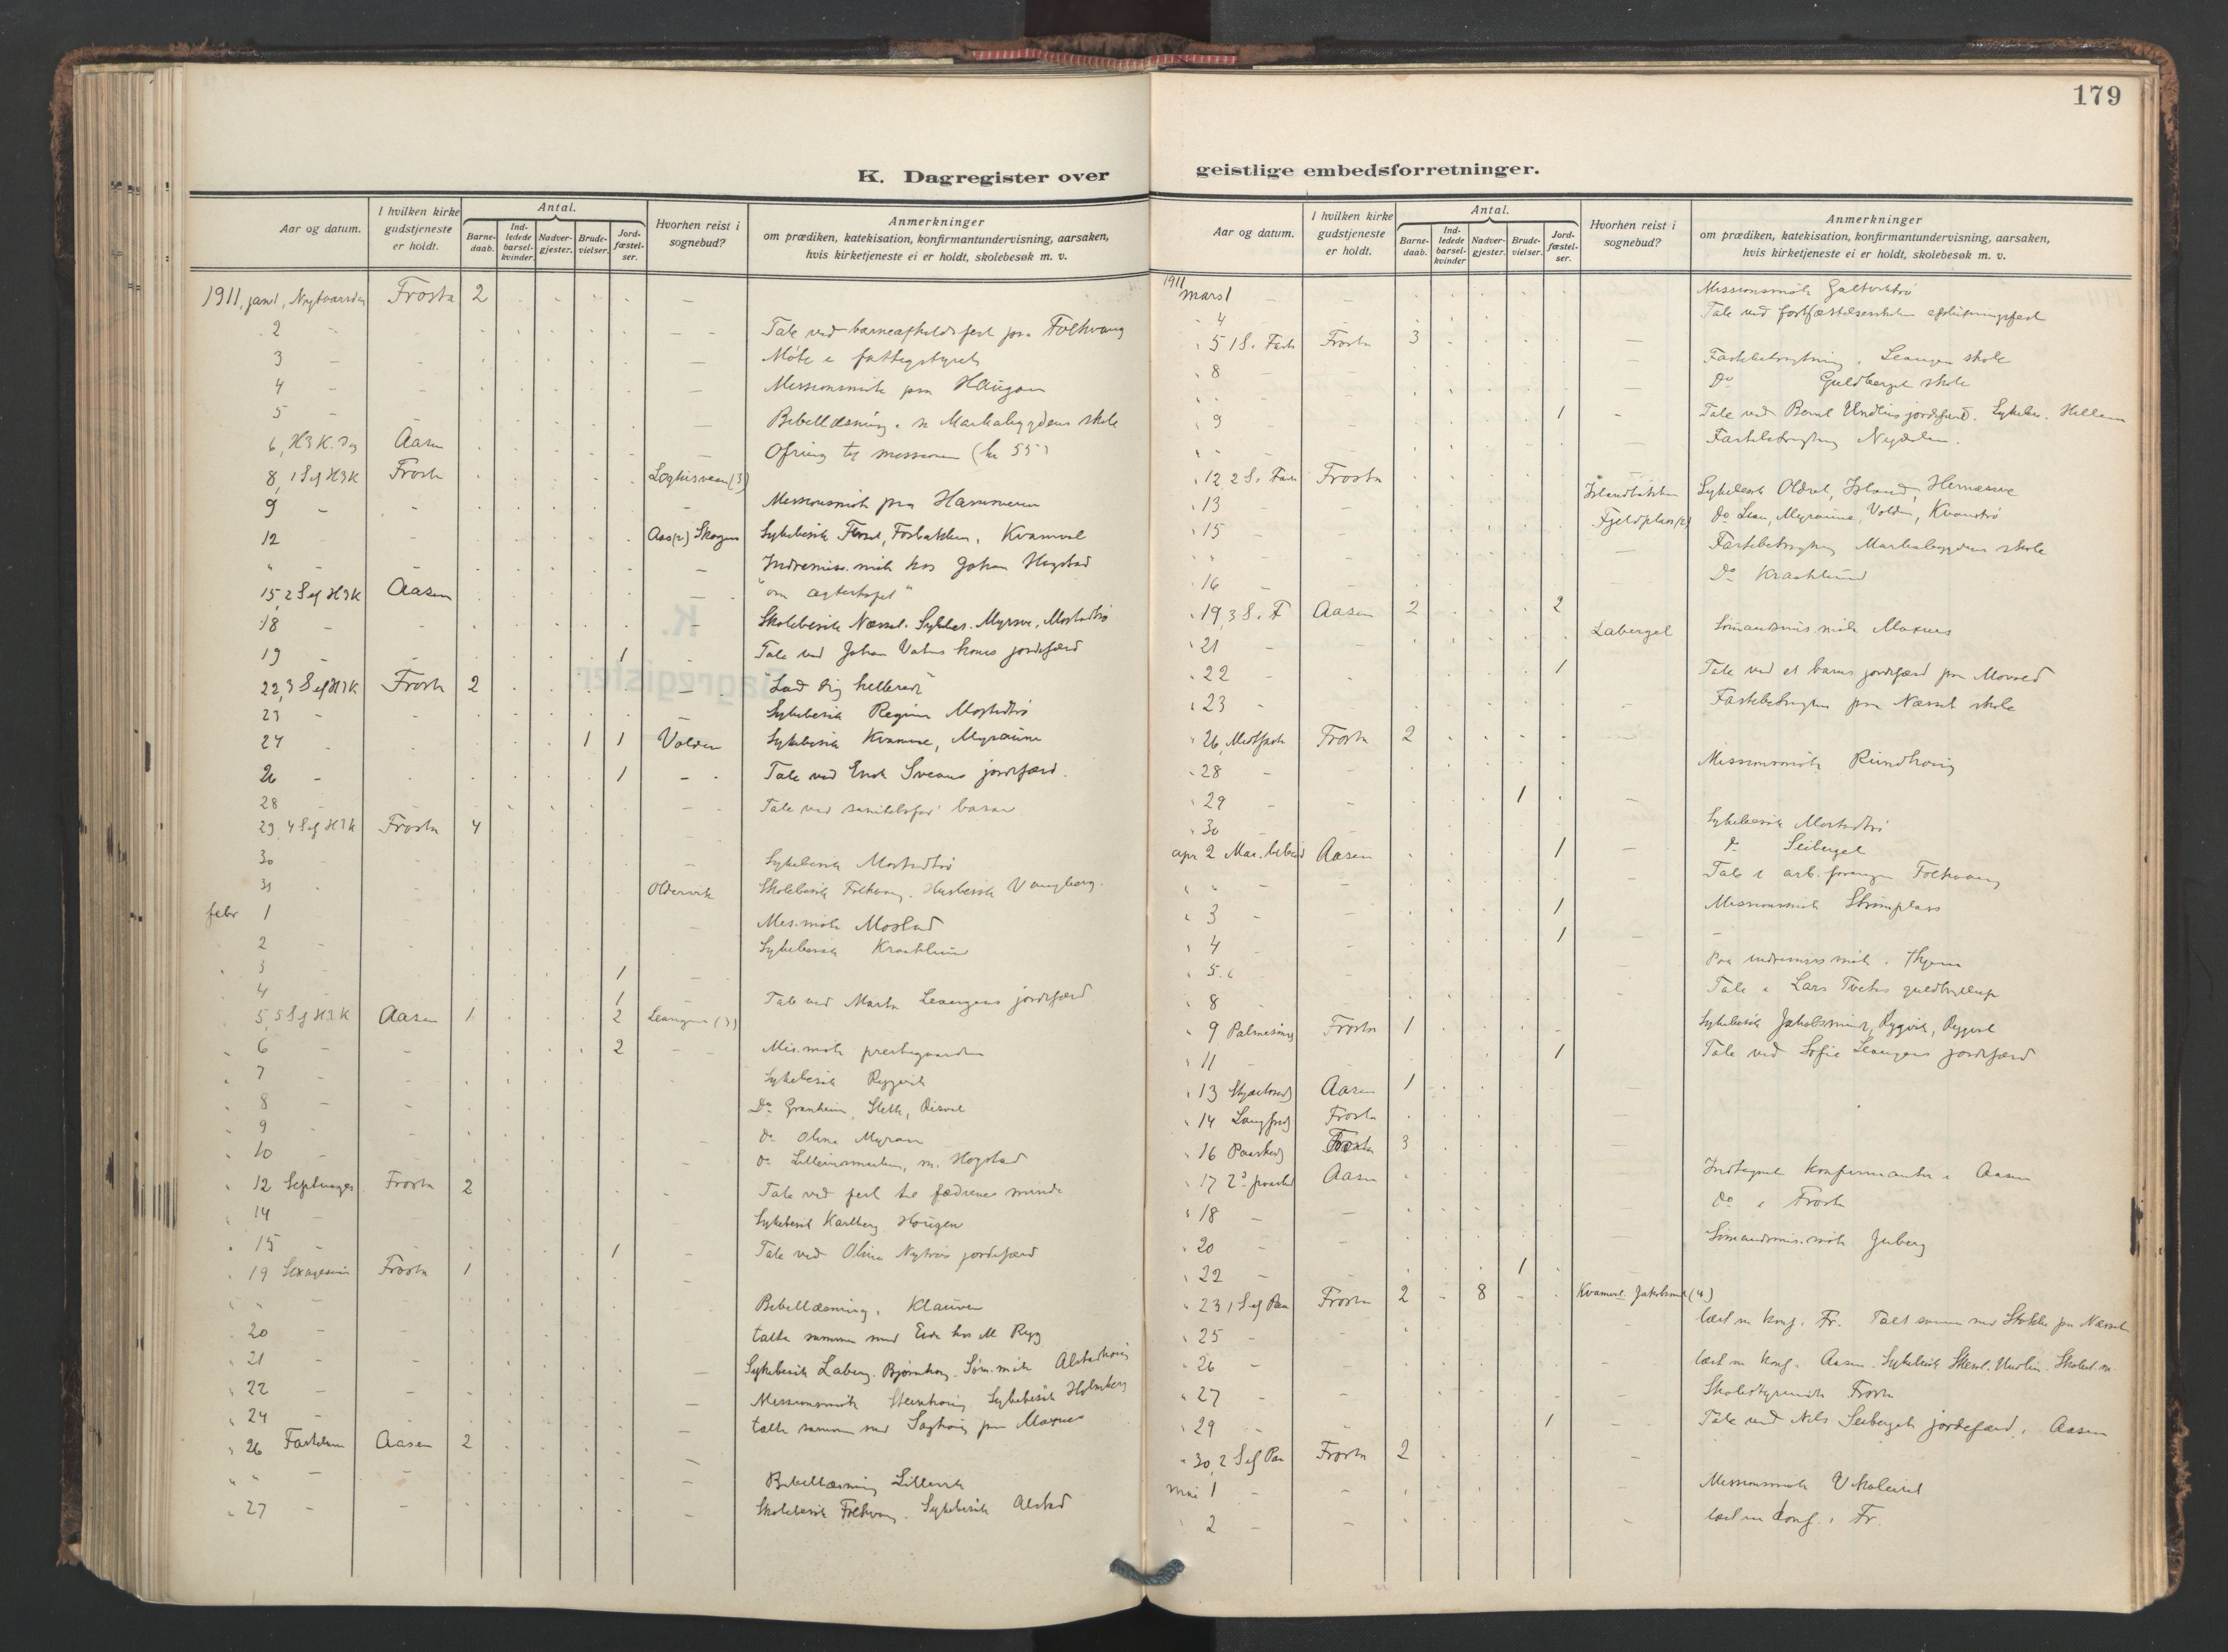 179
K. Dagregister over
geistlige embedsforretninger.
Aar og datum.
I hvilken kirke gudstjeneste er holdt.
Antal.
Barne-daab.
Ind-ledede barsel-kvinder.
Nadver-gjester.
Brude-vielser.
Jord-fæstel-ser.
Hvorhen reist i sognebud?
Anmerkninger
om prædiken, katekisation, konfirmantundervisning, aarsaken,
hvis kirketjeneste ei er holdt, skolebesøk m. v.
1911, jan 1, Nytaarsdag Frosta 2
2 Tale ved barneafholdsfest paa Folkvang
3 Møte i fattigstyret
4 Missionsmøte paa Haugan
5 Bibellæsning i Markabygdens skole
6, H3K. Dg Aasen Ofring til missionen (kr 55)
8, 1 S ef H3K Frosta
9 Missionsmøte paa Hammeren
12 Aas (2) Skogen Sykebesøk Kvamval
" Indremiss. møte hos Johan Hogstad
15, 2 S ef H3K Aasen
18 Skolebesøk Sykebes. Myrsve, Mostadtrø
19 1 Tale ved Johan konas jordefærd
22, 3 S ef H3K Frosta 2
23 Sykebesøk Regine Mostadtrø
24 1 1 Volden Sykebesøk Myraune
26 1 Tale ved Sveans jordefærd.
28 Tale ved sanitetsfor. basar
29, 4 S ef H3K Frosta 4
30 Sykebesøk Mostadtrø
31 Oldervik Skolebesøk Folkvang. Husbesøk Vangberg.
febr 1 Mis.møte Mostad
2 Sykebesøk Kraaklund
3 1
4 1 Tale ved Marta Leangens jordefærd
5, 5 S ef H3K Aasen 1 2 Leangen (3)
6 2 Mis.møte prestegaarden
7 Sykebesøk Rygvik
8 Do Granheim, Slette,
9 do Olina Myran
10
12 Septuages. Frosta 2 Tale ved fest til fædrenes minde
14 Sykebesøk Karlberg Hougen
15 1 Tale ved Olina Nytrøs jordefærd
19 Sexagesima Frosta 1
" " Bibellæsning i Klauven
20 talte sammen med hos M Rygg
21 Sykebesøk Laberg. Bjørnhaug. Søm.møte Alstadhaug
22 Missionsmøte Steenhaug Sykebesøk Holmberg
24 talte sammen med paa Moksnes
26 Fastelavn Aasen 2
" " Bibellæsning Lillevik
27 Skolebesøk Folkvang. Sykebesøk Alstad
Aar og datum.
I hvilken kirke gudstjeneste er holdt.
Antal.
Barne-daab.
Ind-ledede barsel-kvinder
Nadver-gjester.
Brude-vielser.
Jord-fæstel-ser.
Hvorhen reist i sognebud?
Anmerkninger
om prædiken, katekisation, konfirmantundervisning, aarsaken,
hvis kirketjeneste ei er holdt, skolebesøk m. v.
1911
mars 1 Missionsmøte
4 Tale ved
5 1 S. i Faste Frosta 3
8 Fastebetragtning i Leangen skole
" Do Guldberget skole
9 1 Tale ved Bernt Undlins jordefærd. Sykebes.
" Fastebetragtning Nydalen.
12 2 S. i Faste Frosta
13 Sykebesøk Oldrat,
15 Fjeldplas (2) do Lian, Myraune, Volden, Kvamtrø
" Fastebetragtning Markabygdens skole
16 Do Kraaklund
19, 3 S. i F Aasen 2 2
21 Laberget Sømandsmis. møte
22 1 Tale ved et barns jordefærd paa
23 Fastebetragtn paa skole
26, Midtfaste Frosta 2
28 Missionsmøte Rundhaug
29 1
30 Sykebesøk Mostadtrø
apr 2 Mar. bebud Aasen 1 do Seiberget
" " Tale i arb. foreningen Folkvang
3 1 Missionsmøte
4 1
5.6 Paa indremiss møte i
8 Tale i Lars guldbryllup
9 Palmesøndag Frosta 1 Sykebesøk Jakobsminde, Rygvik,
11 1 Tale ved Sofie Leangens jordefærd
13 Skjærtorsd Aasen 1
14 Langfred Frosta
16 Paaskedg Frosta 3
17 2. paaskd Aasen Indtegnet konfirmanter i Aasen
18 do i Frosta
20 Sømandsmis. møte Juberg
22 1
23, 1 S ef Paa Frosta 2 8 Kvamval. Jakobsmd (4)
25 læst m konf. i Fr. Talt sammen med
26 læst m konf. i Aasen. Sykebesøk
27 Skolestyremøte Frosta
29 1 Tale ved Nils Seibergets jordefærd, i Aasen
30, 2 S ef Paa Frosta 2
mai 1 Missionsmøte
2 læst m konf. i Fr.